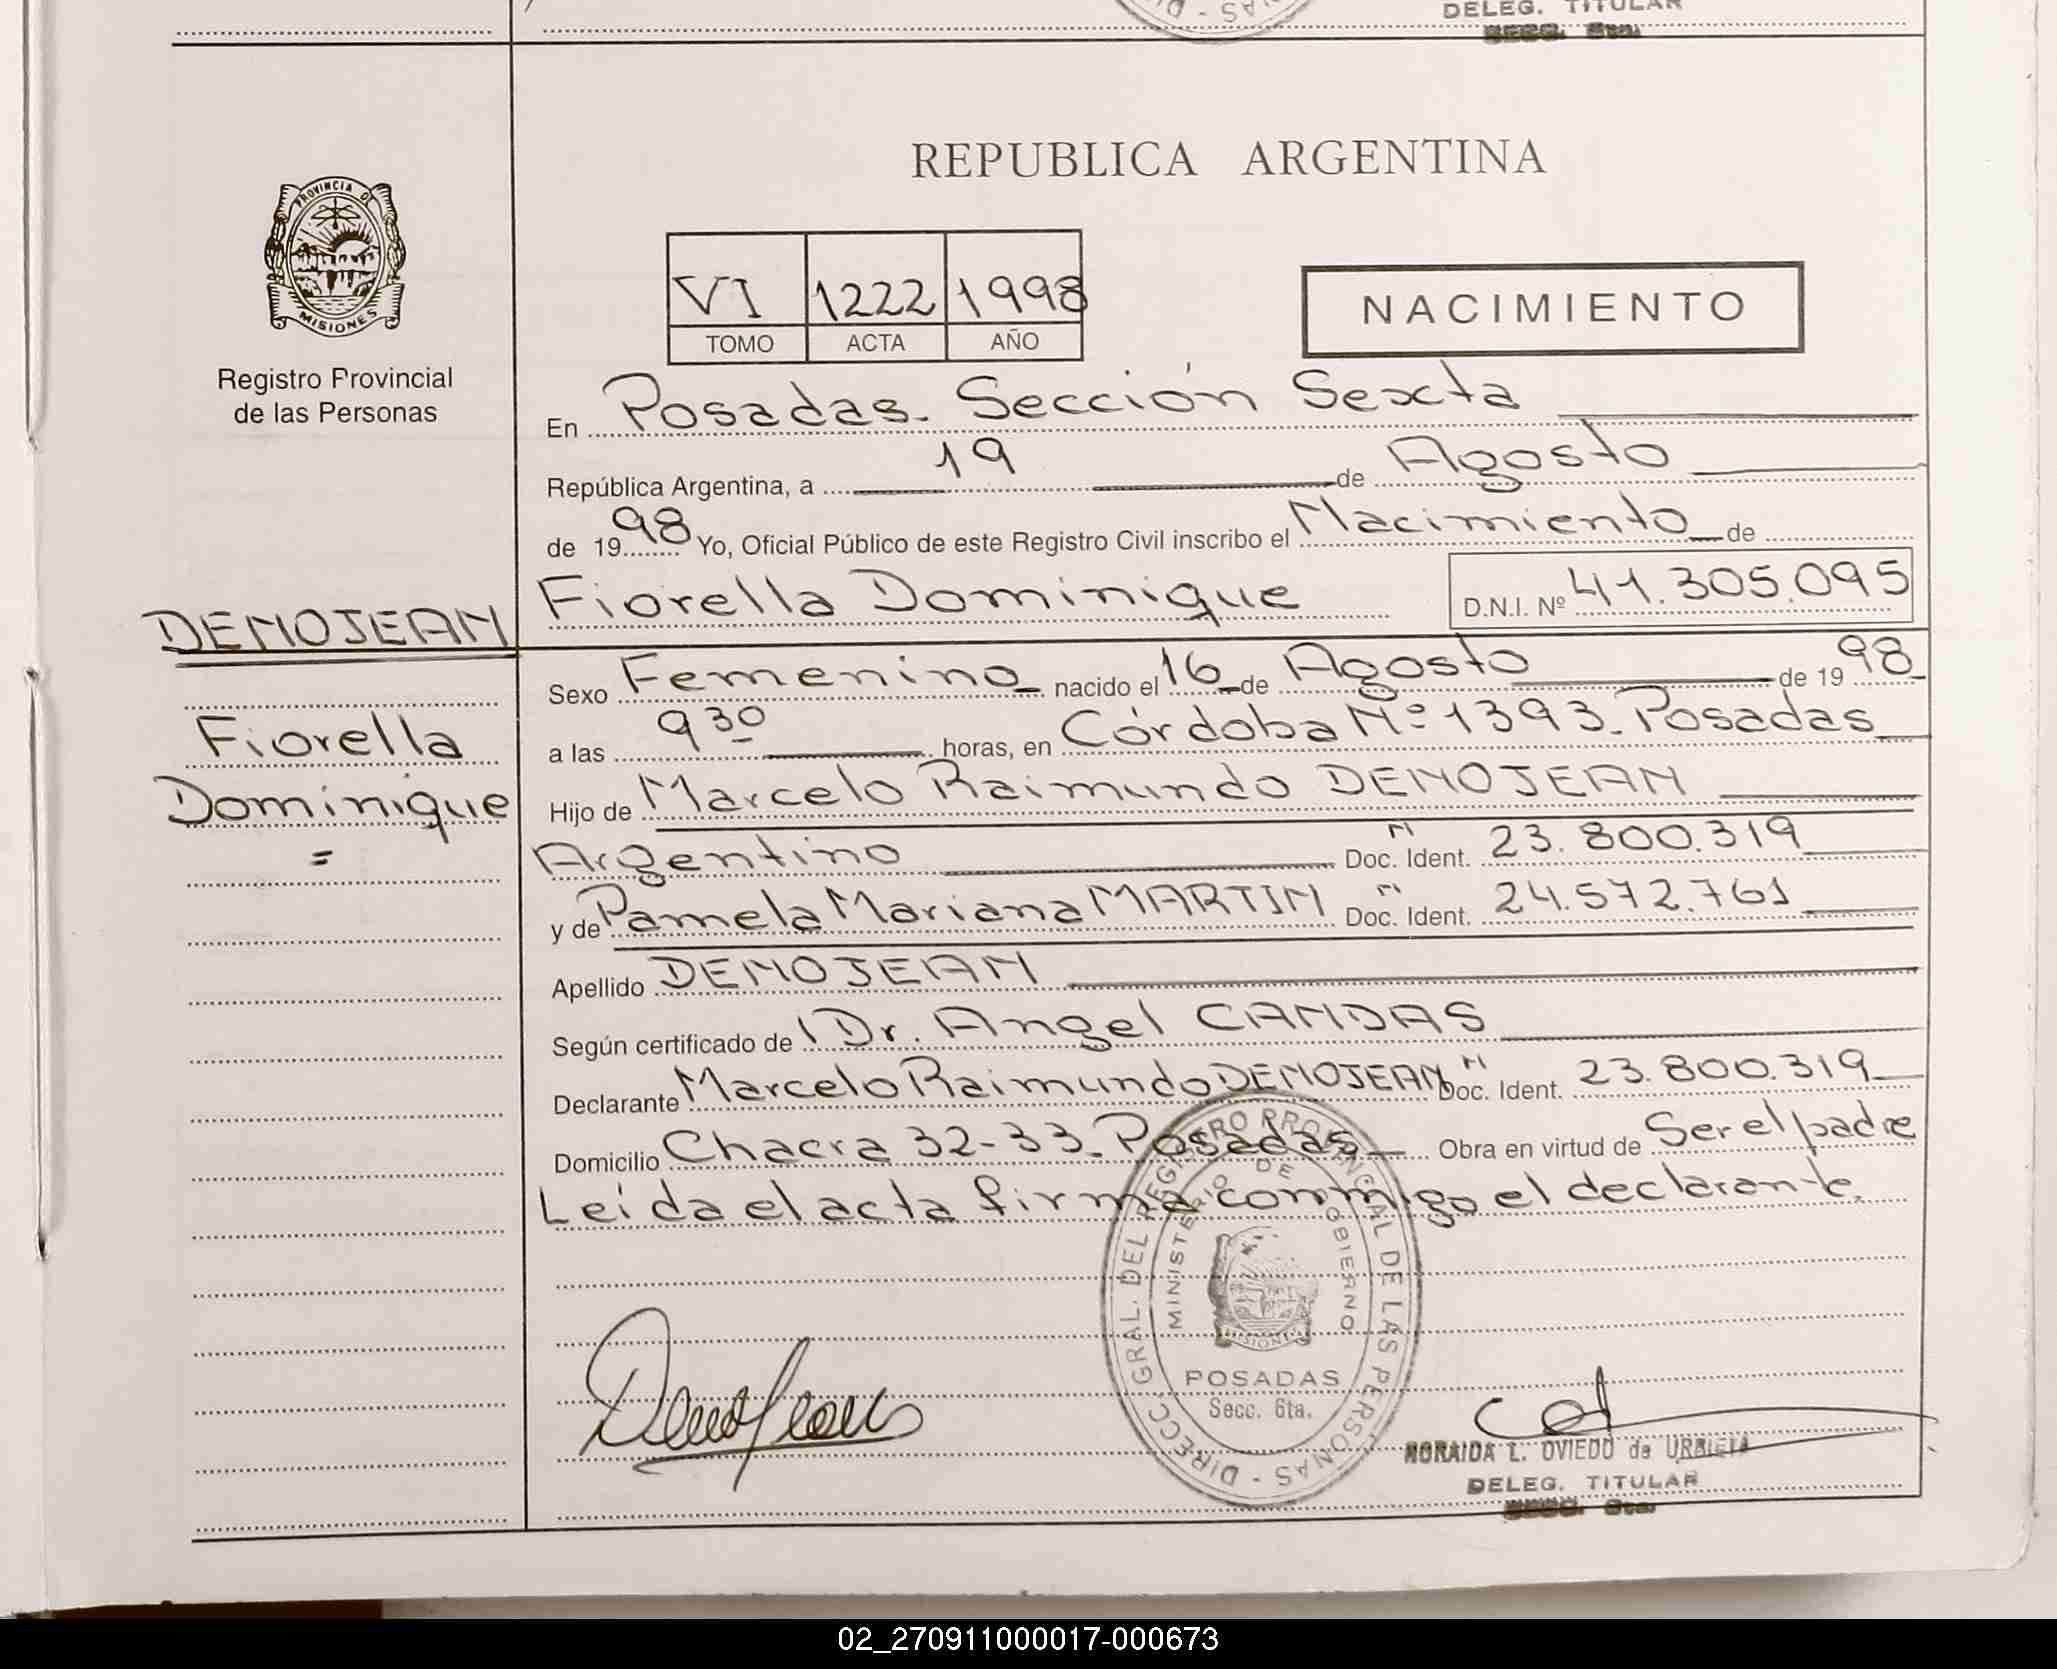 DELEG. TITULAR
REPUBLICA ARGENTINA
PROVINCIA DE
MISIONES
VI 1222 1998
TOMO ACTA AÑO
NACIMIENTO
Registro Provincial
de las Personas
En Posadas. Sección Sexta
República Argentina, a 19 de Agosto
de 1998 Yo, Oficial Público de este Registro Civil inscribo el Nacimiento de
DENOJEAN Fiorella Dominique D.N.I. Nº 41.305.095
Sexo Femenino nacido el 16 de Agosto de 1998
Fiorella
a las 9 30 horas, en Córdoba Nº 1393. Posadas
Dominique
=
Hijo de Marcelo Raimundo DENOJEAN
Argentino Doc. Ident. N 23.800.319
y de Pamela Mariana MARTIN Doc. Ident. N 24.572.761
Apellido DENOJEAN
Según certificado de Dr. Angel CANDAS
Declarante Marcelo Raimundo DENOJEAN Doc. Ident. N 23.800.319
Domicilio Chacra 32-33. Posadas Obra en virtud de Ser el padre
Leída el acta firma conmigo el declarante.
DIRECC. GRAL. DEL REGISTRO PROVINCIAL DE LAS PERSONAS
MINISTERIO DE GOBIERNO
MISIONES
POSADAS
Secc. 6ta.
NORAIDA L. OVIEDO de URBIETA
DELEG. TITULAR
02_270911000017-000673